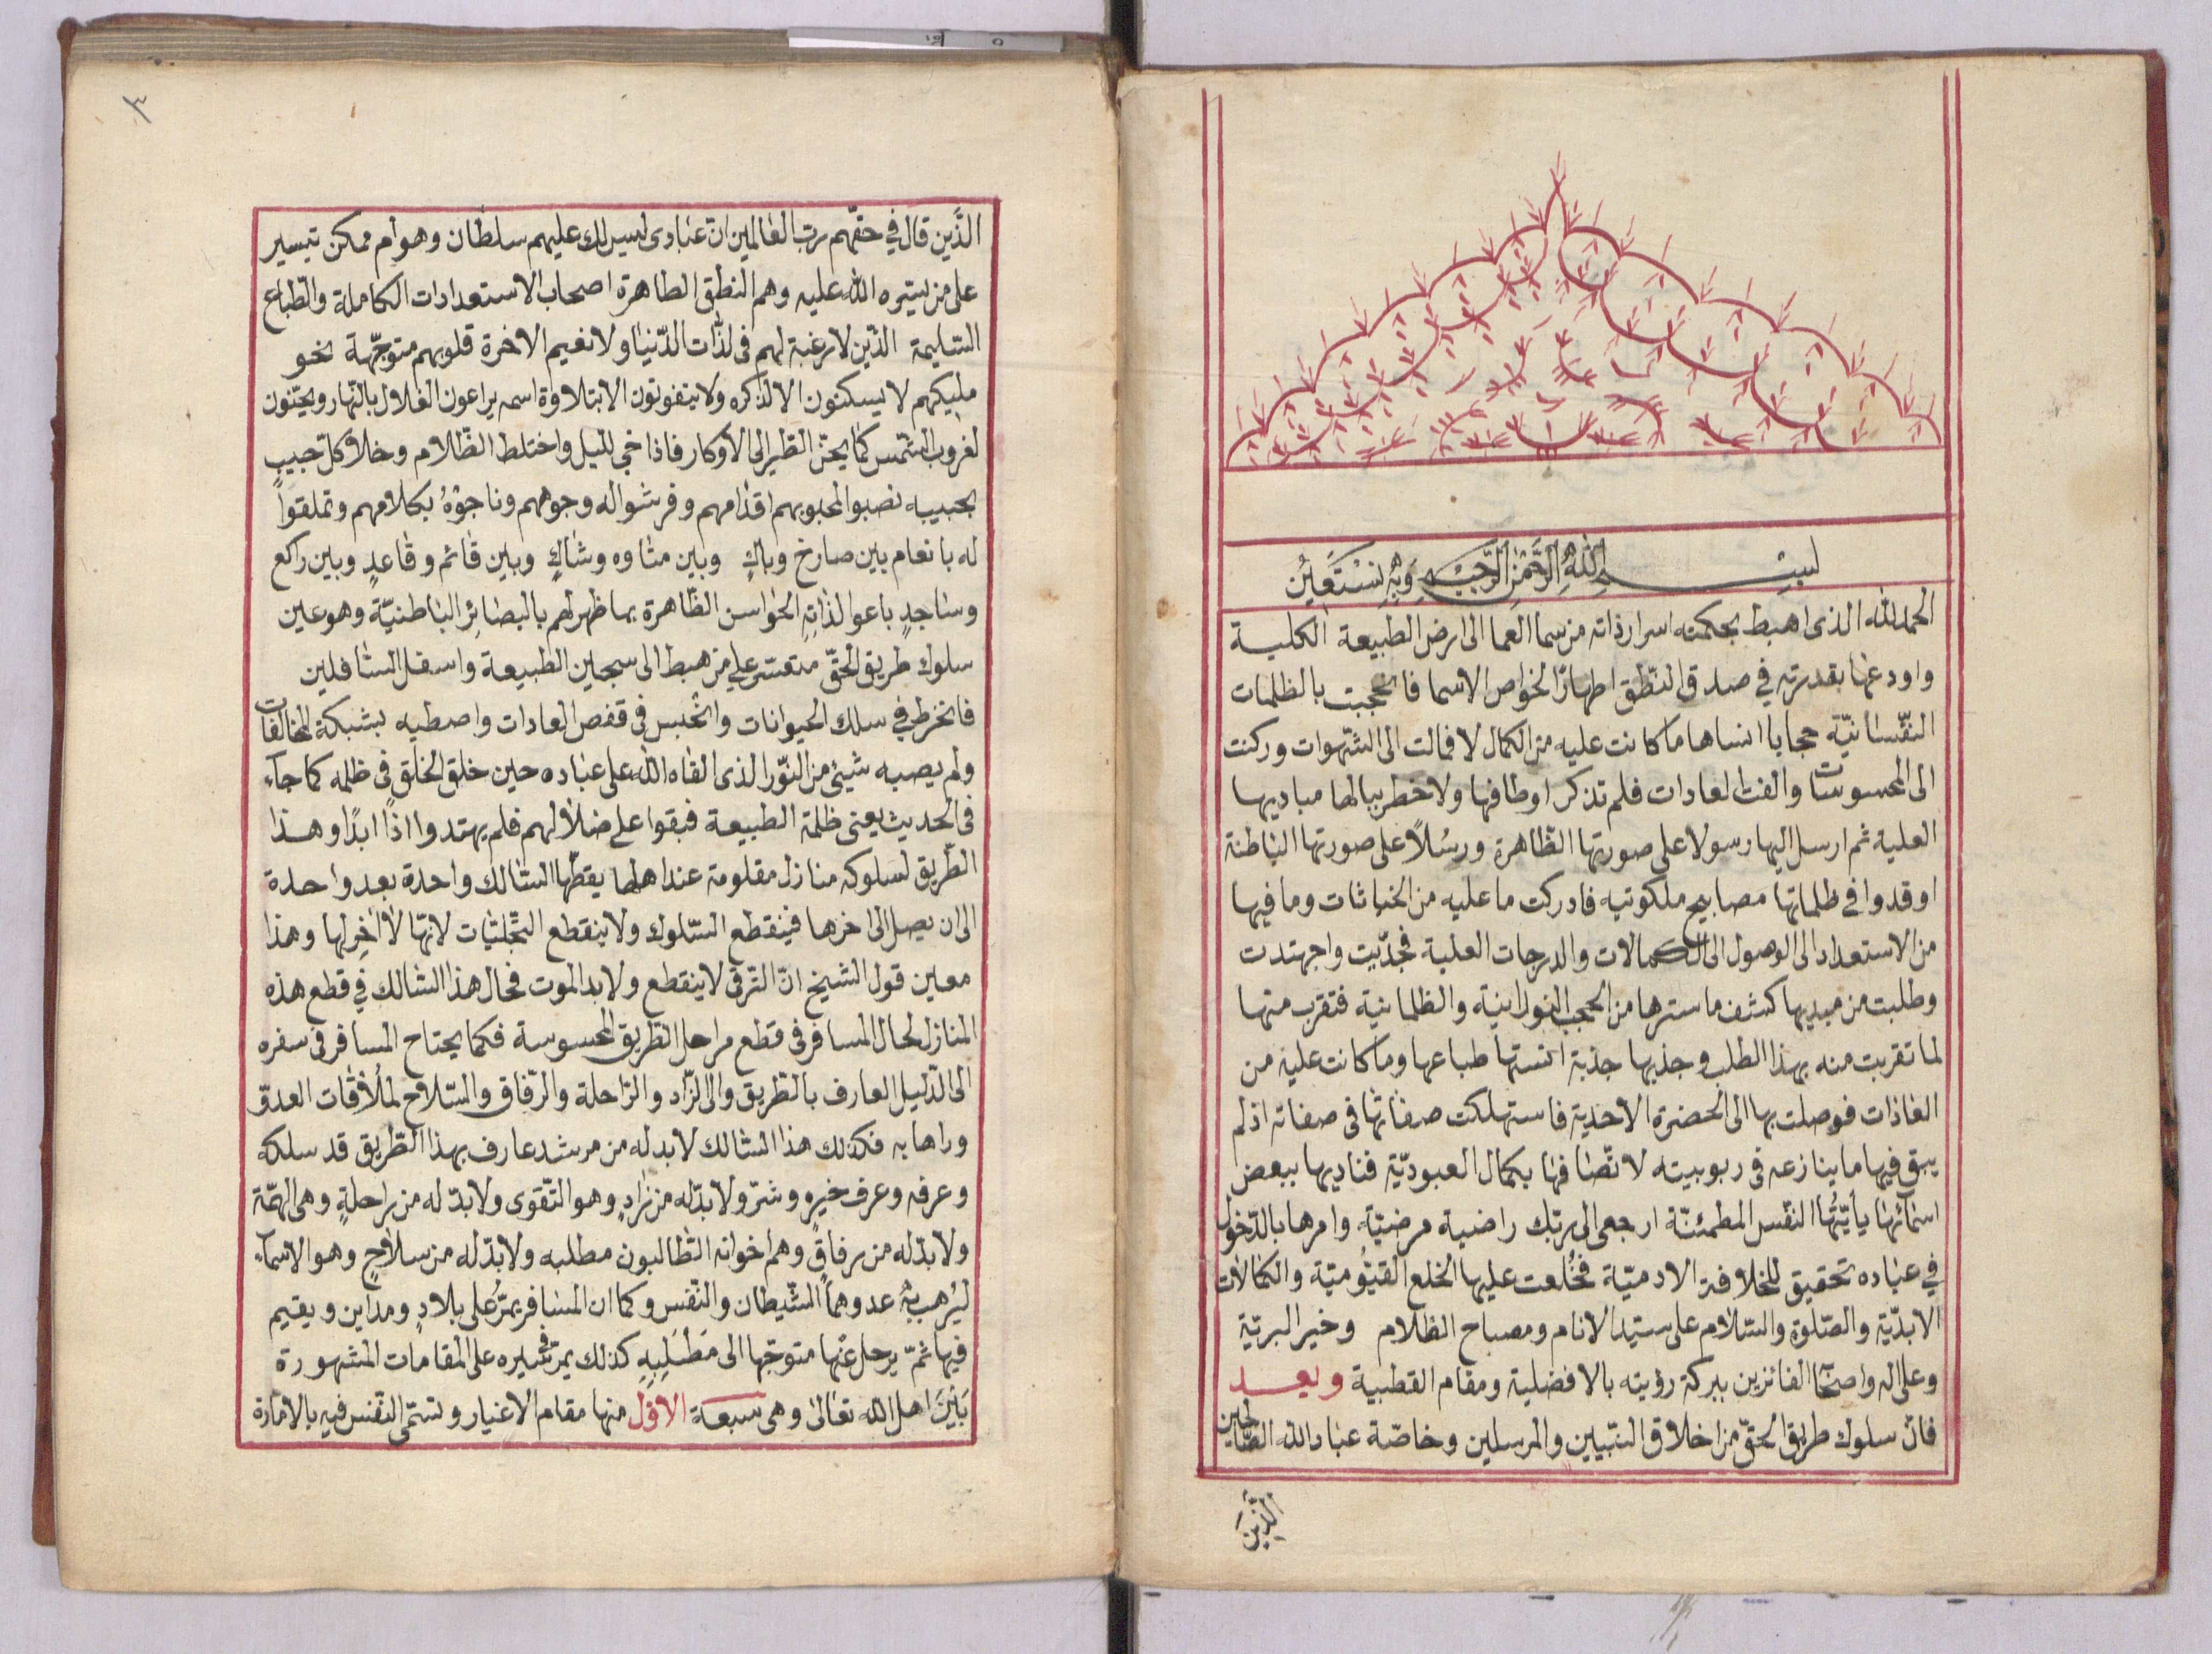 بسم الله الرحمن الرحيم وبه نستعين
الحمد لله الذى اهبط بحكمته اسرار ذاته من سما العما الى ارض الطبيعة الكلية
واودعها بقدرته في صدق النطق اظهارًا لخواص الاسما فانحجبت بالظلمات
النفّسانيّة حجابا انساها ما كانت عليه من الكمال لا فمالت الى الشّهوات وركنت
الى المحسوسات والفت العادات فلم تذكر اوطافها ولا خطر ببالها مباديها
العلية ثم ارسل اليها رسولا على صورتها الظّاهرة ورسُلاً على صورتها الباطنة
اوقدوا في ظلماتها مصابيح ملكوتيه فادركت ما عليه من الخباثات وما فيها
من الاستعداد الى الوصول الى الكمالات والدرجات العلية فجدّيت واجهتدت
وطلبت من مبديها كشف ما سترها من الحجب النورانية والظلمانية فتقرب منها
لما تقربت منه بهذا الطلب وجذبها جذبة انستها طباعها وما كانت عليه من
العاذات فوصلت بها الى الحضرة الاحدية فاستهلكت صفاتها فى صفاته اذ لم
يبق فيها ما ينازعه فى ربوبيته لاتّصافها بكمال العبوديّة فناديها ببعض
اسمآئها يأيّتُها النفس المطمئنّة ارجعى الى ربّك راضية مرضيّة وامرها بالدّخول
في عباده تحقيق للخلافة الادميّة فخُلعت عليها الخلع القيّوُميّة والكمالات
الابديّة والصّلوة والسّلام على سيّد الانام ومصباح الظلام وخير البريّة
وعلى اله واصحابه الفائزين ببركة رؤيته بالافضلية ومقام القطبية وبعد
فانّ سلوك طريق الحقّ من اخلاق النبّيين والمرسلين وخاصّة عباد الله الصّالحين
الَّذِينَ
٢
الذَّين قال في حقّهم ربّ العالمين انّ عبادى ليس لك عليهم سلطان وهو ام ممكن تيسير
على من يسّره الله عليه وهم النطق الطاهرة اصحاب الاستعدادات الكاملة والطّباع
السّليمة الذّين لا رغبة لهم فى لذّات الدّنيا ولا نعيم الاخرة قلوبهم متوجّهة نحو
مليكهم لا يسكنون الا لذكره ولا يتفوتون الا بتلاوة اسمه يراعون الغلال بالنّهار ويحنّون
لغروب الشّمس كما يحنّ الطّير الى الاوكار فاذا خجى لليل واختلط الظّلام وخلا كلّ حبيبٍ
بحبيبه نصبوا لمحبوبهم اقذامهم وفرشوا له وجوههم وناجوْهُ بكلامهم وتملقوا
له بانعام بين صارخ وباكٍ وبين متاوه وشاكٍ وبين قائم وقاعدٍ وبين راكع
وساجدٍ باعوا لذاتِ الحواسن الظّاهرة بما ظهر لهم بالبصائِر الباطنيّة وهو عين
سلوك طريق الحقّ متعسّر على من هبط الى سجين الطبيعة واسفل السّافلين
فانخرط في سلك الحيوانات وانحُبس فى قفص العادات واصطيه بشبكة المخالفات
ولم يصبه شيئ من النّور الذى القاه الله على عباده حين خلق الخلق فى ظلمه كما جآء
فى الحديث يعنى ظلمة الطبيعة فبقوا على ضلالهم فلم يهتدوا اذًا ابدًا وهذا
الطّريق لسلوكه منازل مقلومة عند اهلها يقطّها السّالك واحدة بعد واحدة
الى ان يصل الى اخرها فينقطع السّلوك ولا ينقطع التّجلّيات لانّها لا اخِر لها وهذا
معين قول الشيخ انّ التّرقى لا ينقطع ولا بد الموت فحال هذا السّالك في قطع هذه
المنازل لحال المسافر فى قطع مراحل الطّريق المحسوسة فكما يحتاح المسافر فى سفره
الى الدّليل العارف بالطّريق والى الزّاد والرّاحلة والرّفاق والسّلاح لملُاقات العدوّ
وراهابه فكذلك هذا السّالك لا بد له من مرشد عارف بهذا الطّريق قد سلكه
وعرفه وعرف خيره وشرّ ولا بدّله من زادٍ وهو التّقوى ولا بدّ له من راحلةٍ وهى الهمّة
ولا بدّله من رفاقٍ وهم اخوانه الطّالبون مطلبه ولا بدّله من سلاحٍ وهو الاسمآء
ليُرهب بهُ عدوهماً الشّيطان والنّفس وكما ان المسافر يمرُّ على بلادٍ ومداين ويقيم
فيها ثمّ يرحل عنها متوجّها الى مَطلَبِهِ كذلك يمرّ فى سيره على المقامات المشهورة
بَيْنَ اهل الله تعالى وهى سبعة الاوّل منها مقام الاغيار وتسمّى النّفس فيه بالامّارة